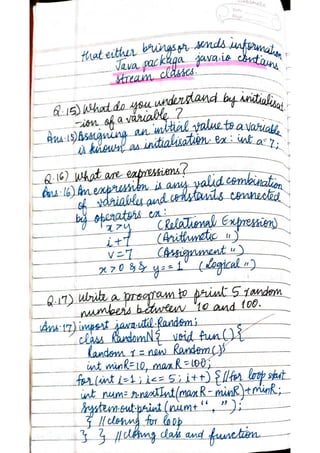 that either brings or sends information
Java package java.io contains
stream classes.
Q.15) What do you understand by initialisat
-ion of a variable ?
Ans.15) Assigning an initial value to a variable
is known as initialisation. ex: int a=7;
Q.16) What are expressions?
Ans.16) An expression is any valid combination
of variables and constants connected
by operators ex:
x>y (Relational Expression)
i+7 (Arithmetic ")
v=7 (Assignment ")
x>0 && y==1 (Logical ")
Q.17) Write a program to print 5 random
numbers between 10 and 100.
Ans.17) import java.util.Random;
class RandomN{ void fun(){
Random r = new Random();
int minR=10, maxR=100;
for(int i=1; i<=5; i++) { //for loop start
int num= r.nextInt(maxR-minR)+minR;
System.out.print(num+" , ");
} //closing for loop
} } //closing class and function